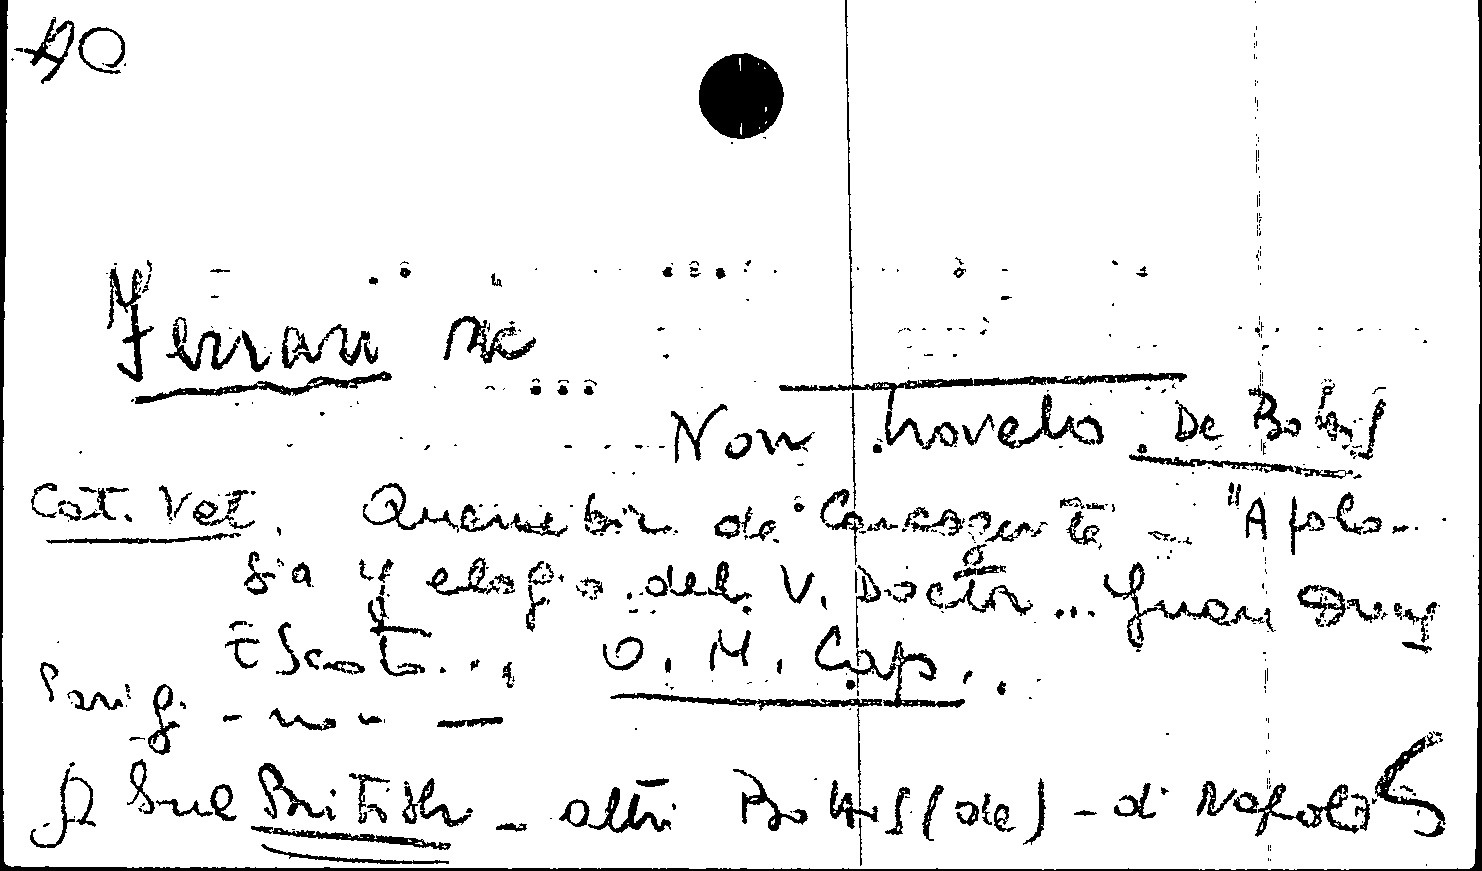 40
Ferrari
Non trovato. De Bottis
Cat. Vat. Quemebin de Carcagente - "Apolo-
gia y elogio del V. Doctor... Juan Duns
Escoto.., O. M. Cap..
Parigi - no - —
Sul British - altri Bottis (de) - di Napoli